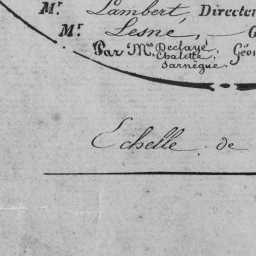 Mr. Lambert, Directe
Mr. Lesne,
Par Mrs. Declaye, Géo
Chalette,
Sarnègue.
Echelle de